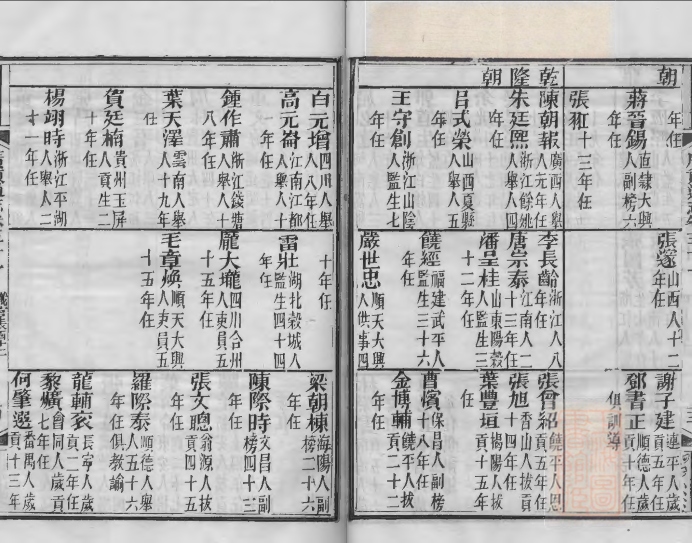 朝
年任
蔣晉錫直隸大興人副榜六年任
張𤣱十三年任
乾隆朝
陳朝報廣西舉人元年任
朱廷熙浙江餘姚人舉人四年任
呂式榮山西夏縣人舉人五年任
王守創浙江山陰人監生七年任
張邃山西人十二年任
李長齡浙江人八年任
唐宗泰江南人二十三年任
潘呈桂山東陽穀人監生三十二年任
饒經福建武平人監生三十六年任
嚴世忠順天大興人供事四
謝子建連平人歲貢五年任
鄧書正順德人歲貢十年任俱訓導
張曾紹饒平人恩貢五年任
張旭香山人拔貢十四年任
葉豐垣揭陽人拔貢十五年任
曹懷保昌人副榜十八年任
金博輔饒平人拔貢二十二年任
白元增四川人舉人八年任
高元崙江南江都人舉人十一年任
鍾作肅浙江錢塘人舉人十八年任
葉天澤雲南人舉人十九年任
賀廷楠貴州玉屏人貢生二十年任
楊翊時浙江平湖人舉人二十一年任
十年任
雷壯湖北穀城人監生四十四年任
龐大瓏四川合州人吏員五十五年任
毛章煥順天大興人吏員五十五年任
梁朝棟海陽人副榜二十六年任
陳際時文昌人副榜四十三年任
張文聰翁源人拔貢四十五年任
羅際泰順德人舉人五十六年任俱教諭
龍輔袞長寧人歲貢二年任
黎爌會同人歲貢七年任
何肇選番禺人歲貢十三年